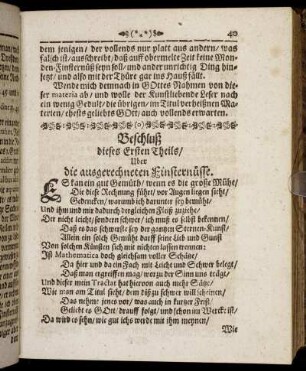 ❧(*⁎*)☙ 40
dem jenigen/ der vollends nur platt aus andern/ was
falsch ist/ ausschreibt/ daß auf obermelte Zeit keine Mon-
den-Finsternüß seyn soll/ und ander unrichtig Ding hin-
setzt/ und also mit der Thüre gar ins Hauß fällt.
Wende mich demnach in GOttes Nahmen von die-
ser materia ab/ und wolle der Kunstliebende Leser noch
ein wenig Gedult/ die übrigen/ im Titul verheißnen Ma-
terien/ ehests geliebts GOtt/ auch vollends erwarten.
Beschluß
dieses Ersten Theils/
Uber
die ausgerechneten Finsternüsse.
Es kan ein gut Gemüth/ wenn es die große Mühe/
Die diese Rechnung führt/ vor Augen liegen sieht/
Gedencken/ warumb ich darunter sey bemüht/
Und ihn und mir dadurch dergleichen Fleiß zuziehe/
Der nicht leicht/ sondern schwer/ ich muß es selbst bekennen/
Daß es das schwereste sey der gantzen Sternen-Kunst/
Allein ein solch Gemüthe darff seine Lieb und Gunst
Von solchen Künsten sich mit nichten lassen trennen:
Ist Mathematica doch gleichsam voller Schätze/
Da hier und da ein Fach mit Leicht und Schwer belegt/
Daß man ergreiffen mag/ worzu der Sinn uns trägt/
Und dieser mein Tractat hat hiervon auch nicht Sätze/
Wie man am Titul sieht/ dem diß zu schwer will scheinen/
Das weßen/ jener vor/ was auch in kurtzer Frist/
Geliebt es GOtt/ drauff folgt/ und schon im Wercke ist/
Da wird es sehn/ wie gut ichs werde mit ihm meynen/
Wie